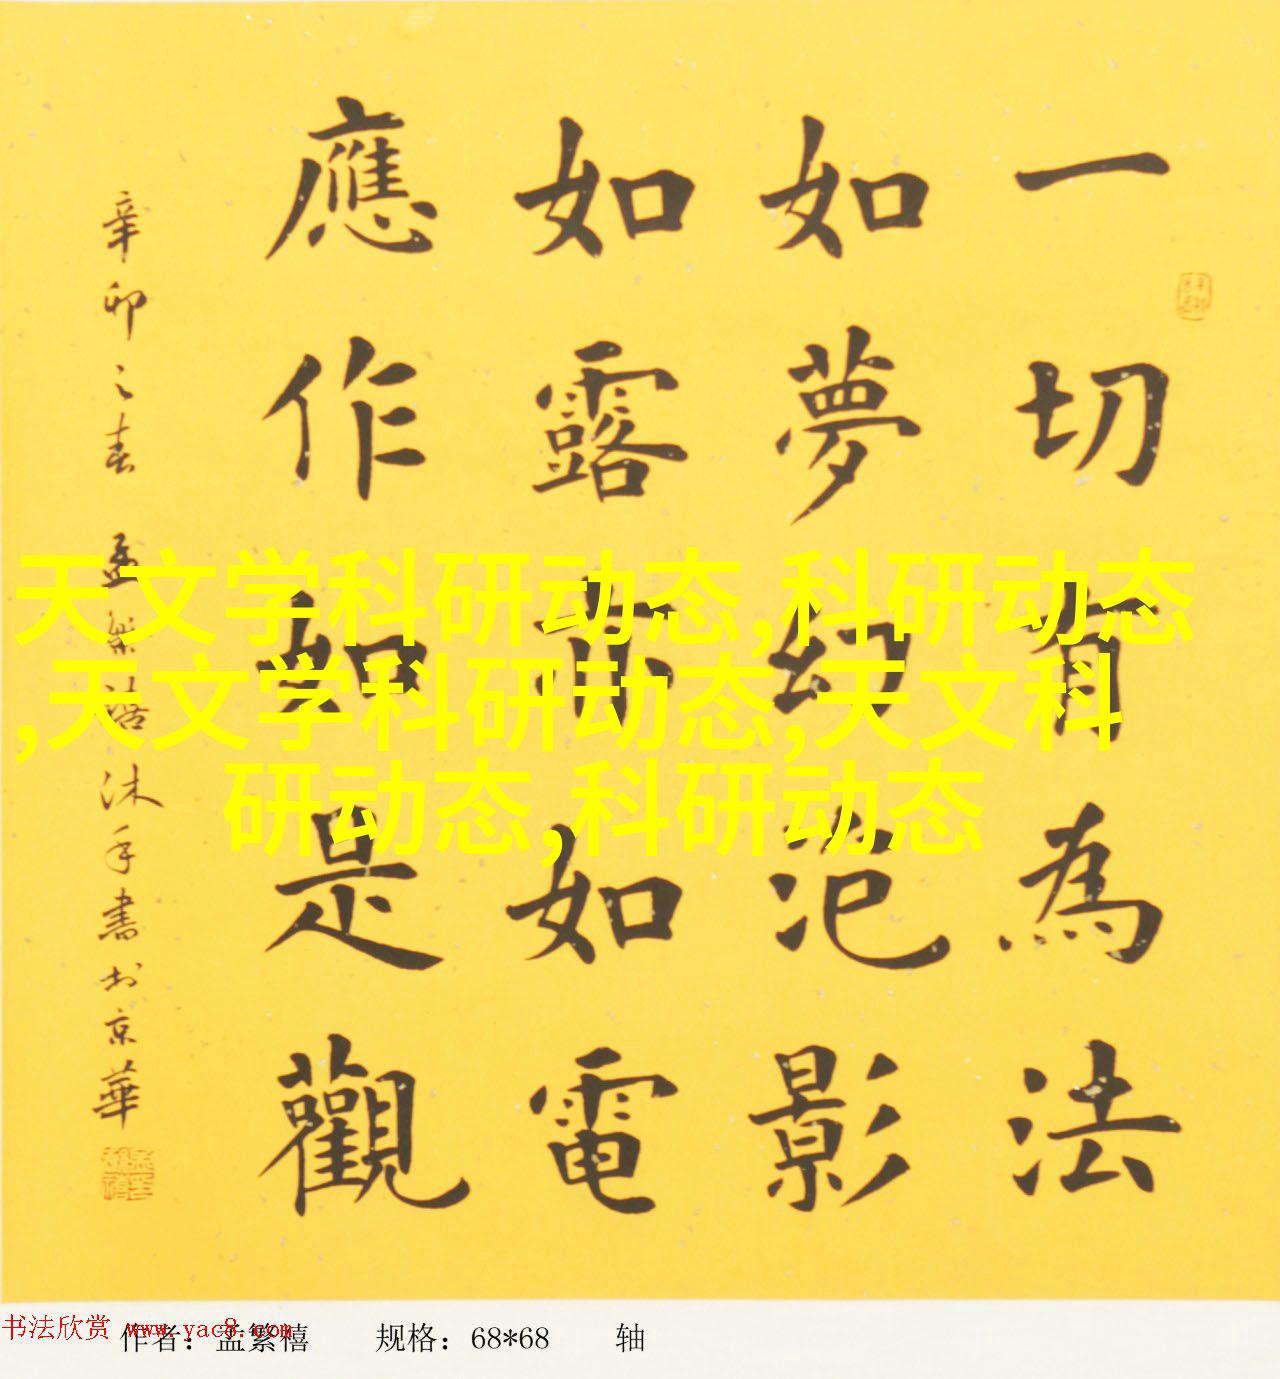 一切有為法
如夢幻泡影
如露亦如電
應作如是觀
辛卯之春 孟繁禧沐手書於京華
天文学科研动态,科研动态
,天文学科研动态,天文科
研动态,科研动态
书法欣赏 www.yac8.com
作者：孟繁禧 规格：68*68 轴